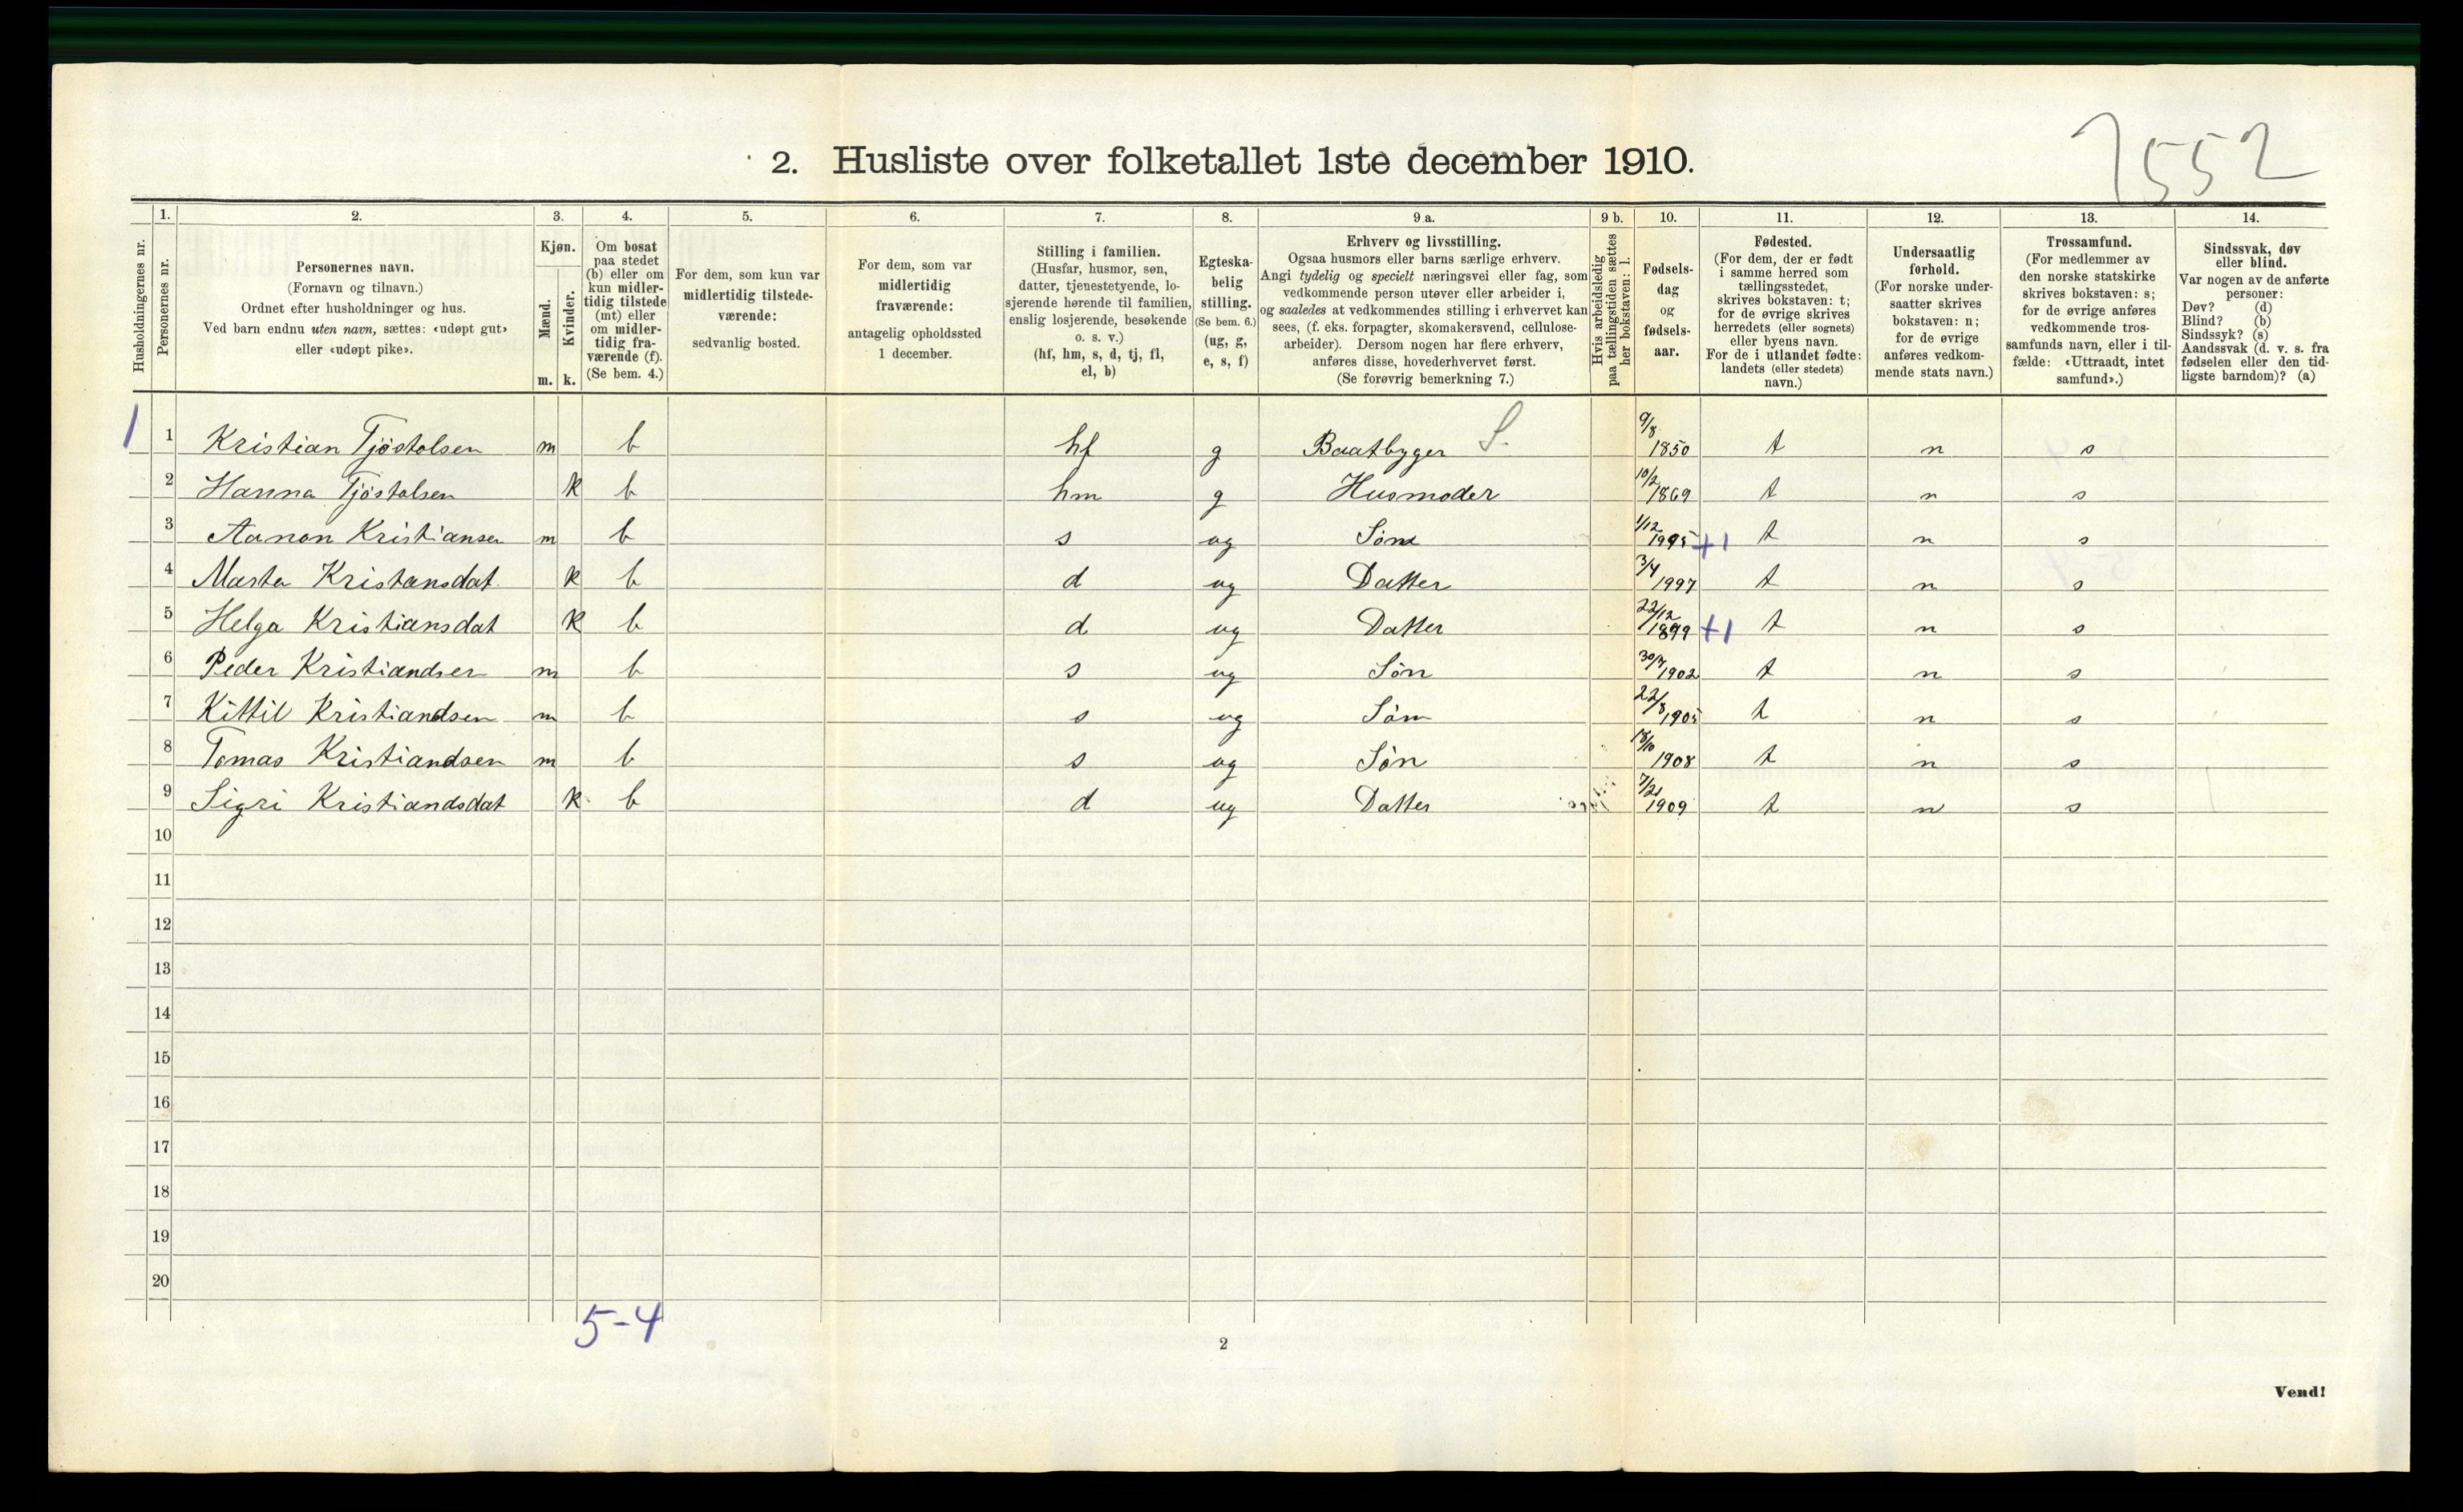 7552
2. Husliste over folketallet 1ste december 1910.
Husholdningernes nr.
1.
Personernes nr.
2.
Personernes navn.
(Fornavn og tilnavn.)
Ordnet efter husholdninger og hus.
Ved barn endnu uten navn, sættes: «udøpt gut»
eller «udøpt pike».
3.
Kjøn.
Mænd.
m.
Kvinder.
k.
4.
Om bosat
paa stedet
(b) eller om
kun midler-
tidig tilstede
(mt) eller
om midler-
tidig fra-
værende (f).
(Se bem. 4.)
5.
For dem, som kun var
midlertidig tilstede-
værende:
sedvanlig bosted.
6.
For dem, som var
midlertidig
fraværende:
antagelig opholdssted
1 december.
7.
Stilling i familien.
(Husfar, husmor, søn,
datter, tjenestetyende, lo-
sjerende hørende til familien,
enslig losjerende, besøkende
o. s. v.)
(hf, hm, s, d, tj, fl,
el, b)
8.
Egteska-
belig
stilling.
(Se bem. 6.)
(ug, g,
e, s, f)
9 a.
Erhverv og livsstilling.
Ogsaa husmors eller barns særlige erhverv.
Angi tydelig og specielt næringsvei eller fag, som
vedkommende person utøver eller arbeider i,
og saaledes at vedkommendes stilling i erhvervet kan
sees, (f. eks. forpagter, skomakersvend, cellulose-
arbeider). Dersom nogen har flere erhverv,
anføres disse, hovederhvervet først.
(Se forøvrig bemerkning 7.)
9 b.
Hvis arbeidsledig
paa tællingstiden sættes
her bokstaven: l.
10.
Fødsels-
dag
og
fødsels-
aar.
11.
Fødested.
(For dem, der er født
i samme herred som
tællingsstedet,
skrives bokstaven: t;
for de øvrige skrives
herredets (eller sognets)
eller byens navn.
For de i utlandet fødte:
landets (eller stedets)
navn.)
12.
Undersaatlig
forhold.
(For norske under-
saatter skrives
bokstaven: n;
for de øvrige
anføres vedkom-
mende stats navn.)
13.
Trossamfund.
(For medlemmer av
den norske statskirke
skrives bokstaven: s;
for de øvrige anføres
vedkommende tros-
samfunds navn, eller i til-
fælde: «Uttraadt, intet
samfund».)
14.
Sindssvak, døv
eller blind.
Var nogen av de anførte
personer:
Døv? (d)
Blind? (b)
Sindssyk? (s)
Aandssvak (d. v. s. fra
fødselen eller den tid-
ligste barndom)? (a)
1 1 Kristian Tjöstolsen m b hf g Baatbyger S. 9/8 1850 t n s
2 Hanna Tjöstolsen k b hm g Husmoder 10/2 1869 t n s
3 Aanon Kristiansen m b s ug Sön 1/12 1995 +1 t n s
4 Marta Kristansdat. k b d ug Datter 3/4 1997 t n s
5 Helga Kristiansdat k b d ug Datter 22/12 1899 +1 t n s
6 Peder Kristiandsen m b s ug Sön 30/7 1902 t n s
7 Kittil Kristiandsen m b s ug Sön 22/8 1905 t n s
8 Tomas Kristiandsen m b s ug Sön 18/10 1908 t n s
9 Sigri Kristiandsdat k b d ug Datter 1909 t n s
10
11
12
13
14
15
16
17
18
19
20
5-4
2
Vend!